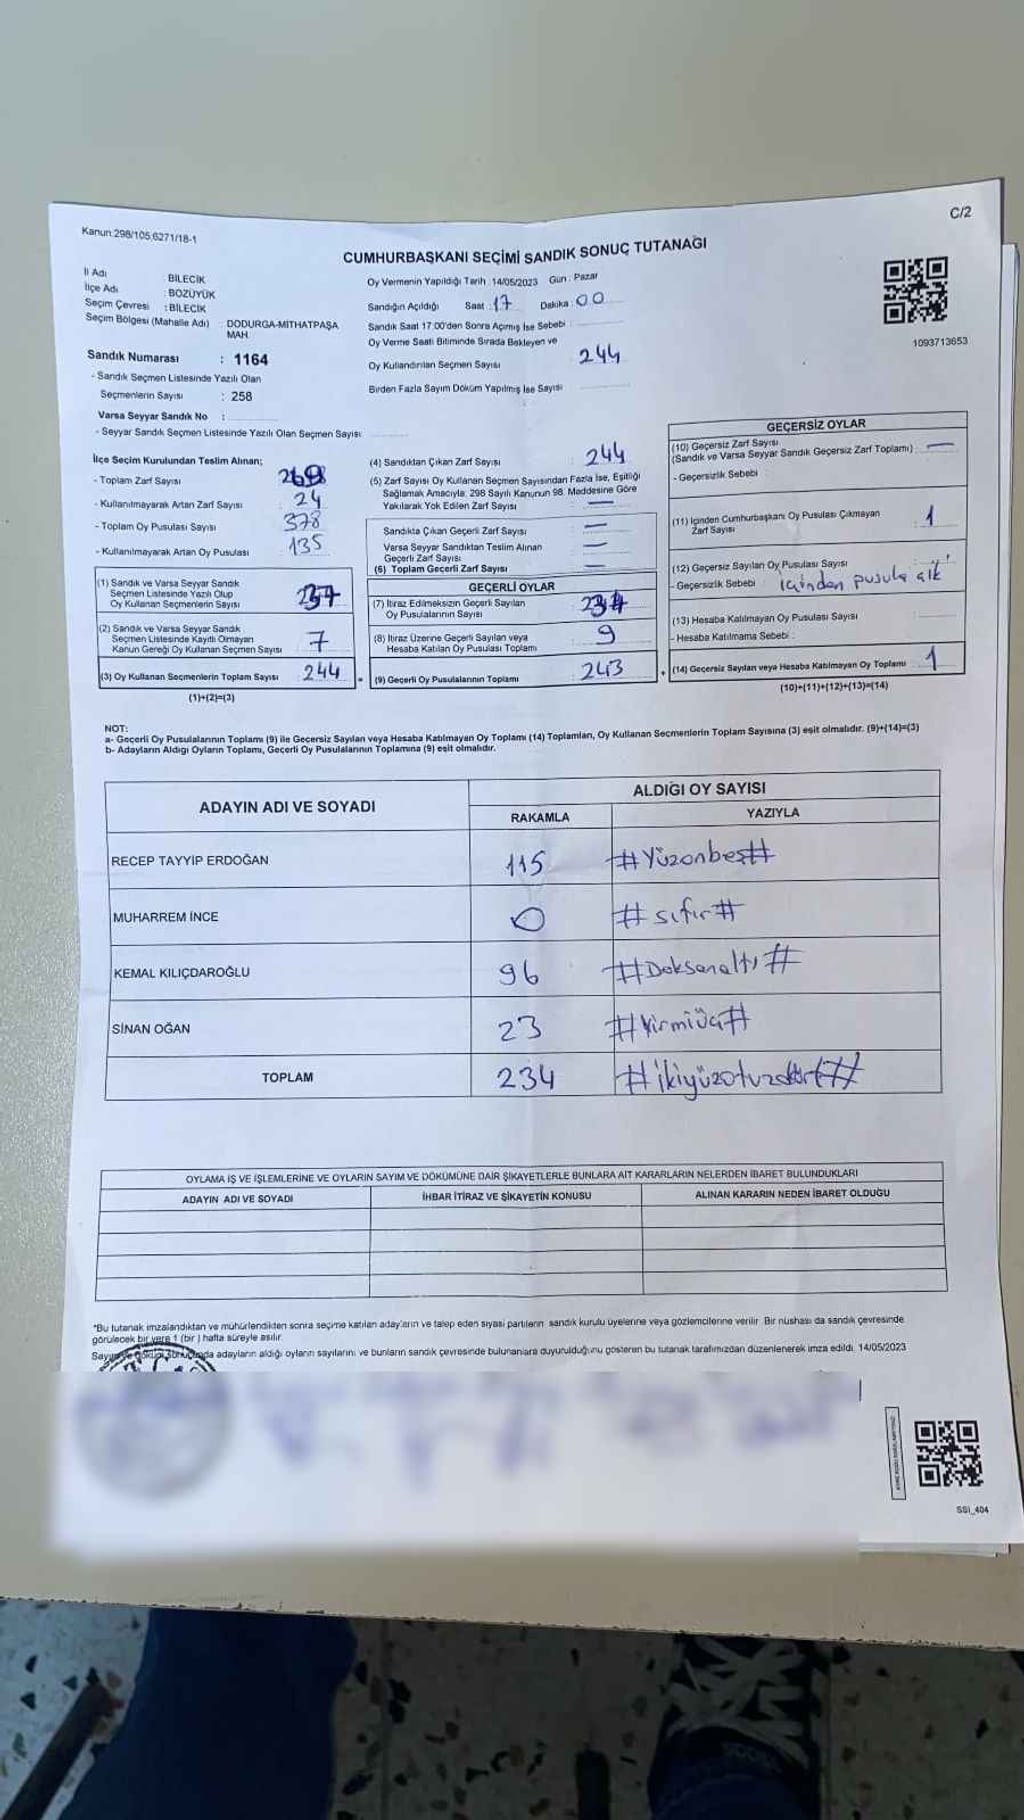 C/2
Kanun:298/105,6271/18-1
CUMHURBAŞKANI SEÇİMİ SANDIK SONUÇ TUTANAĞI
İl Adı : BİLECİK
İlçe Adı : BOZÜYÜK
Seçim Çevresi : BİLECİK
Seçim Bölgesi (Mahalle Adı) : DODURGA-MİTHATPAŞA
MAH.
Sandık Numarası : 1164
- Sandık Seçmen Listesinde Yazılı Olan
Seçmenlerin Sayısı : 258
Varsa Seyyar Sandık No :
- Seyyar Sandık Seçmen Listesinde Yazılı Olan Seçmen Sayısı
Oy Vermenin Yapıldığı Tarih : 14/05/2023 Gün : Pazar
Sandığın Açıldığı Saat : 17 Dakika : 00
Sandık Saat 17.00'den Sonra Açımış İse Sebebi :
Oy Verme Saati Bitiminde Sırada Bekleyen ve
Oy Kullandırılan Seçmen Sayısı 244
Birden Fazla Sayım Döküm Yapılmış İse Sayısı
1093713653
İlçe Seçim Kurulundan Teslim Alınan;
- Toplam Zarf Sayısı
- Kullanılmayarak Artan Zarf Sayısı 24
- Toplam Oy Pusulası Sayısı 378
- Kullanılmayarak Artan Oy Pusulası 135
(1) Sandık ve Varsa Seyyar Sandık
Seçmen Listesinde Yazılı Olup
Oy Kullanan Seçmenlerin Sayısı 237
(2) Sandık ve Varsa Seyyar Sandık
Seçmen Listesinde Kayıtlı Olmayan
Kanun Gereği Oy Kullanan Seçmen Sayısı 7
(3) Oy Kullanan Seçmenlerin Toplam Sayısı 244
(1)+(2)=(3)
(4) Sandıktan Çıkan Zarf Sayısı : 244
(5) Zarf Sayısı Oy Kullanan Seçmen Sayısından Fazla İse, Eşitliği
Sağlamak Amacıyla, 298 Sayılı Kanunun 98. Maddesine Göre
Yakılarak Yok Edilen Zarf Sayısı : —
Sandıkta Çıkan Geçerli Zarf Sayısı : —
Varsa Seyyar Sandıktan Teslim Alınan
Geçerli Zarf Sayısı : —
(6) Toplam Geçerli Zarf Sayısı : —
GEÇERLİ OYLAR
(7) İtiraz Edilmeksizin Geçerli Sayılan
Oy Pusulalarının Sayısı 234
(8) İtiraz Üzerine Geçerli Sayılan veya
Hesaba Katılan Oy Pusulası Toplamı 9
(9) Geçerli Oy Pusulalarının Toplamı : 243
GEÇERSİZ OYLAR
(10) Geçersiz Zarf Sayısı
(Sandık ve Varsa Seyyar Sandık Geçersiz Zarf Toplamı) : —
- Geçersizlik Sebebi :
(11) İçinden Cumhurbaşkanı Oy Pusulası Çıkmayan
Zarf Sayısı : 1
(12) Geçersiz Sayılan Oy Pusulası Sayısı :
- Geçersizlik Sebebi : içinden pusula
(13) Hesaba Katılmayan Oy Pusulası Sayısı :
- Hesaba Katılmama Sebebi :
(14) Geçersiz Sayılan veya Hesaba Katılmayan Oy Toplamı : 1
(10)+(11)+(12)+(13)=(14)
NOT:
a- Geçerli Oy Pusulalarının Toplamı (9) ile Geçersiz Sayılan veya Hesaba Katılmayan Oy Toplamı (14) Toplamları, Oy Kullanan Seçmenlerin Toplam Sayısına (3) eşit olmalıdır. (9)+(14)=(3)
b- Adayların Aldığı Oyların Toplamı, Geçerli Oy Pusulalarının Toplamına (9) eşit olmalıdır.
ADAYIN ADI VE SOYADI ALDIĞI OY SAYISI
RAKAMLA YAZIYLA
RECEP TAYYİP ERDOĞAN 115 #Yüzonbeş#
MUHARREM İNCE 0 #sıfır#
KEMAL KILIÇDAROĞLU 96 #Doksanaltı#
SİNAN OĞAN 23 #Yirmiüç#
TOPLAM 234 #ikiyüzotuzdört#
OYLAMA İŞ VE İŞLEMLERİNE VE OYLARIN SAYIM VE DÖKÜMÜNE DAİR ŞİKAYETLERLE BUNLARA AİT KARARLARIN NELERDEN İBARET BULUNDUKLARI
ADAYIN ADI VE SOYADI İHBAR İTİRAZ VE ŞİKAYETİN KONUSU ALINAN KARARIN NEDEN İBARET OLDUĞU
*Bu tutanak imzalandıktan ve mühürlendikten sonra seçime katılan adayların ve talep eden siyasi partilerin sandık kurulu üyelerine veya gözlemcilerine verilir. Bir nüshası da sandık çevresinde
görülecek bir yere 1 (bir) hafta süreyle asılır.
adayların aldığı oyların sayılarını ve bunların sandık çevresinde bulunanlara duyurulduğunu gösteren bu tutanak tarafımızdan düzenlenerek imza edildi. 14/05/2023
SSI_404